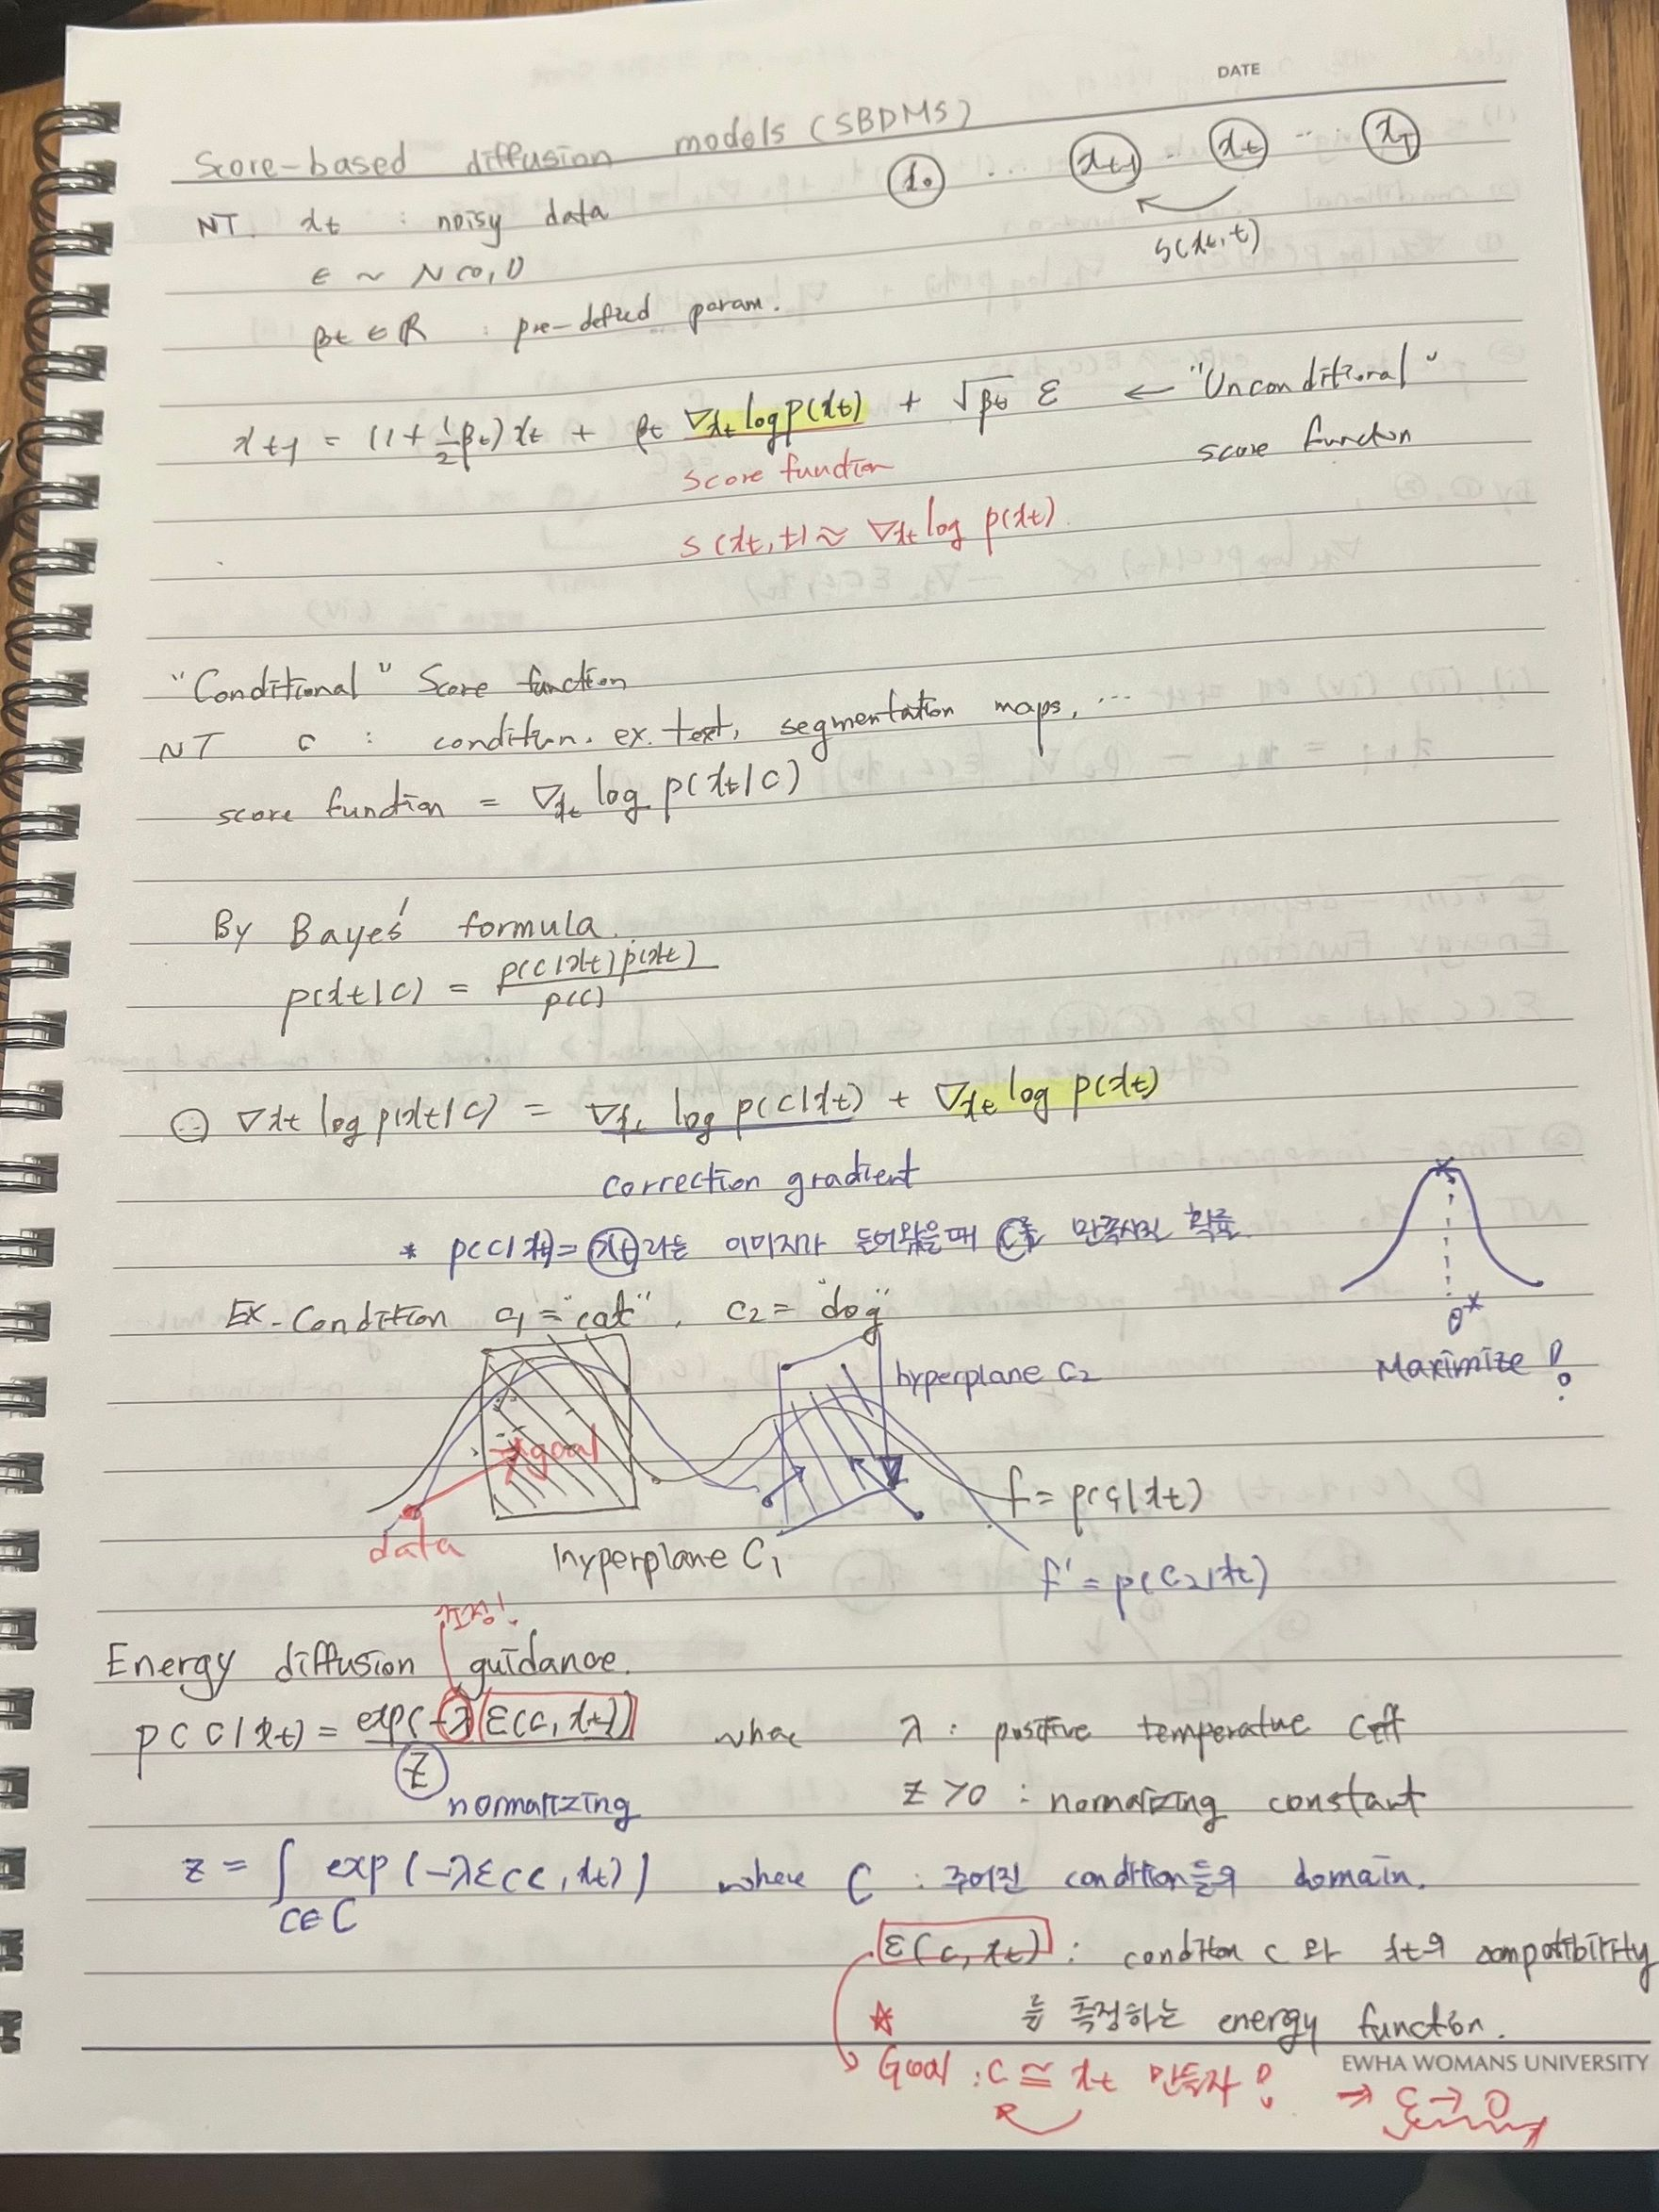 DATE
Score-based diffusion models (SBDMS)
x₀ ... xt-1 .. xt ... xT
S(xt, t)
NT. xt : noisy data
ϵ ~ N(0, 1)
βt ∈ ℝ : pre-defied param.
xt-1 = (1+½βt)xt + βt ∇xt log p(xt) + √βt ε ← "Unconditional"
score function
score function
s(xt, t) ≈ ∇xt log p(xt)
"Conditional" Score function
NT c : condition. ex. text, segmentation maps, ...
score function = ∇xt log p(xt|c)
By Bayes' formula.
p(xt|c) = p(c|xt)p(xt) / p(c)
∴ ∇xt log p(xt|c) = ∇xt log p(c|xt) + ∇xt log p(xt)
correction gradient
* p(c|xt) = xt라는 이미지가 들어왔을때 C를 만족시킬 확률
EX. Condition c₁ = "cat", c₂ = "dog"
θ*
Maximize!
hyperplane C₂
goal
data
hyperplane C₁
f = p(c₁|xt)
f' = p(c₂|xt)
Energy diffusion guidance.
p(c|xt) = exp(-λε(c, xt)) / Z where λ : positive temperature Coeff
normalizing
Z > 0 : normalizing constant
Z = ∫c∈C exp(-λε(c, xt)) where C : 주어진 condition들의 domain.
ε(c, xt) : condition c 와 xt의 compatibility
☆ 를 측정하는 energy function.
EWHA WOMANS UNIVERSITY
Goal : c ≅ xt 만들자! → ε → 0